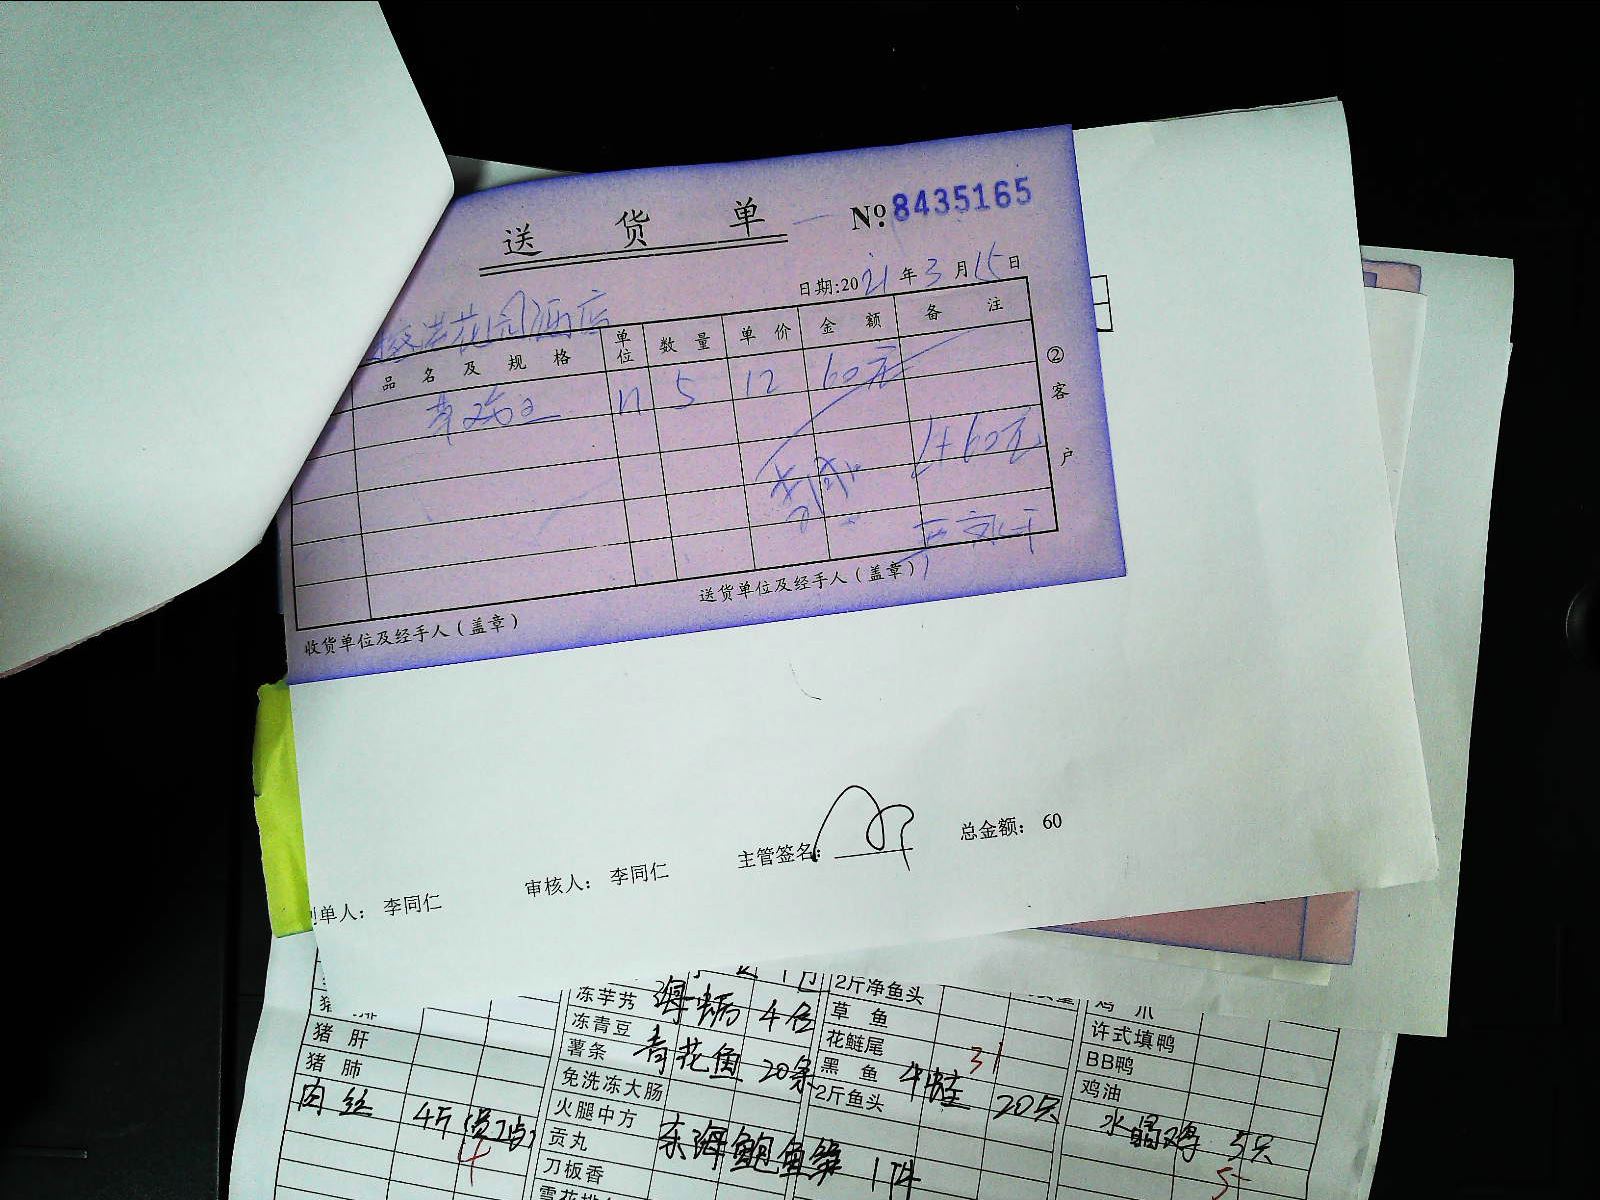 送 货 单 № 8435165
日期:2021年3月15日
花园酒店
品 名 及 规 格 单位 数 量 单 价 金 额 备 注
5 12 60元
1+60元
② 客 户
送货单位及经手人(盖章)
收货单位及经手人(盖章)
主管签名: 总金额: 60
审核人: 李同仁
单人: 李同仁
2斤净鱼头
冻芋艿 4包 草 鱼 鸡 爪
猪 肝 冻青豆 花鲢尾 许式填鸭
薯条 青花鱼 20条 黑 鱼 31 BB鸭
猪 肺 免洗冻大肠 2斤鱼头 牛蛙 20只 鸡油
肉丝 4斤 火腿中方 水晶鸡 5只
4 贡丸 1件 5
刀板香